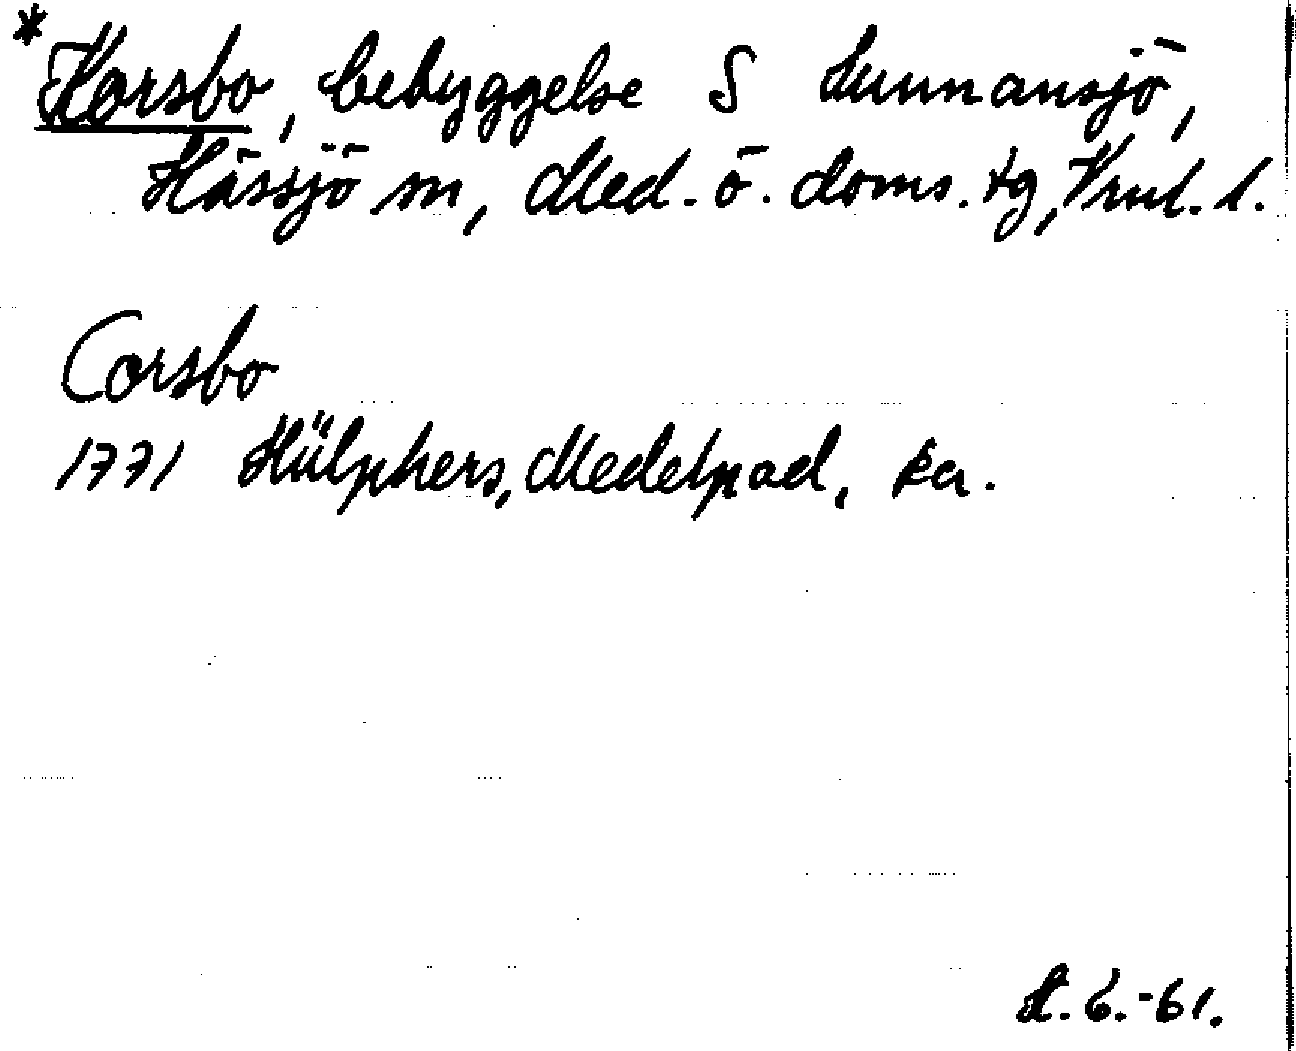 * Korsbo, bebyggelse S Sunnansjö,
Hässjö sn, Med. ö. doms. tg, Vrnl. l.
Corsbo
1771 Hülphers, Medelpad, ka.
H. G. -61.